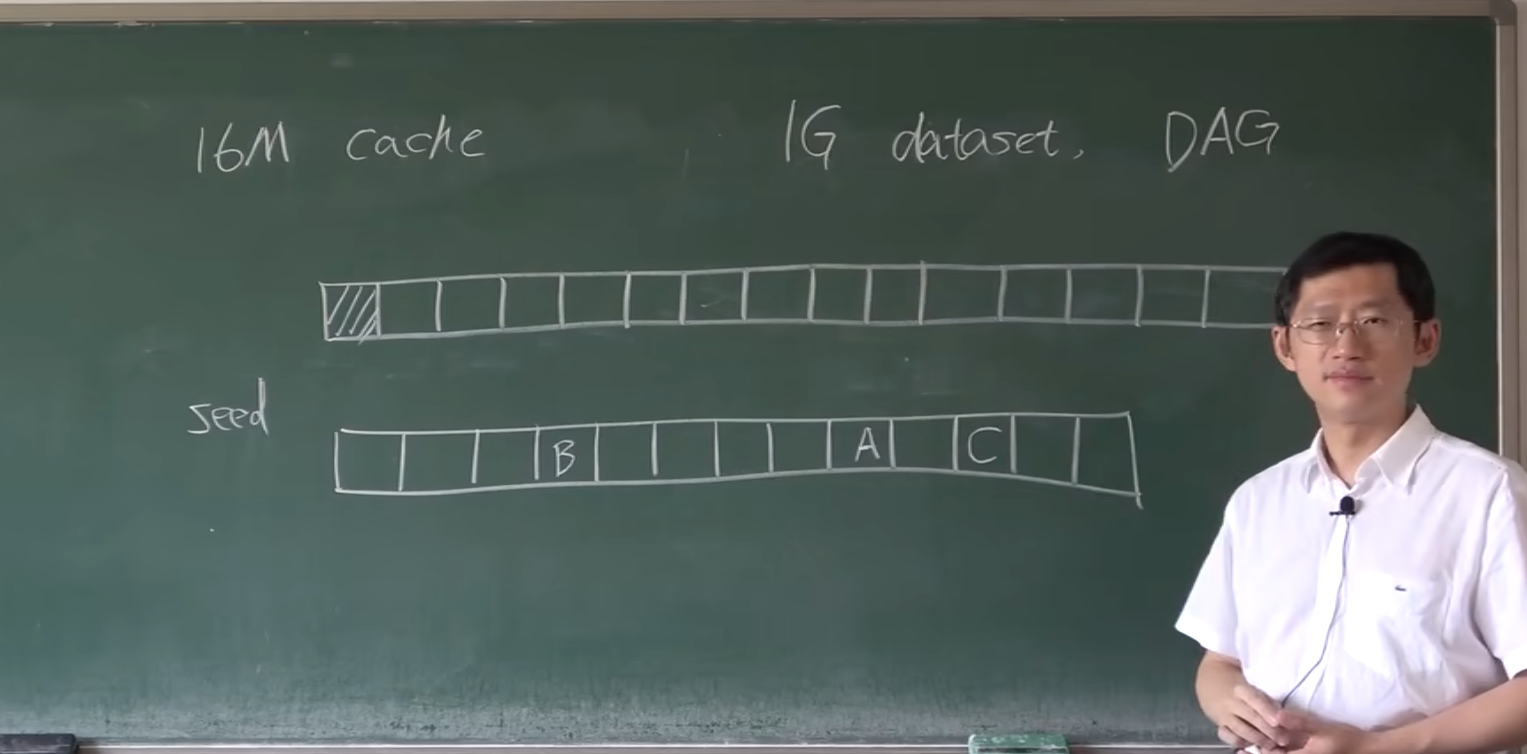 16M cache 1G dataset, DAG
seed
B A C